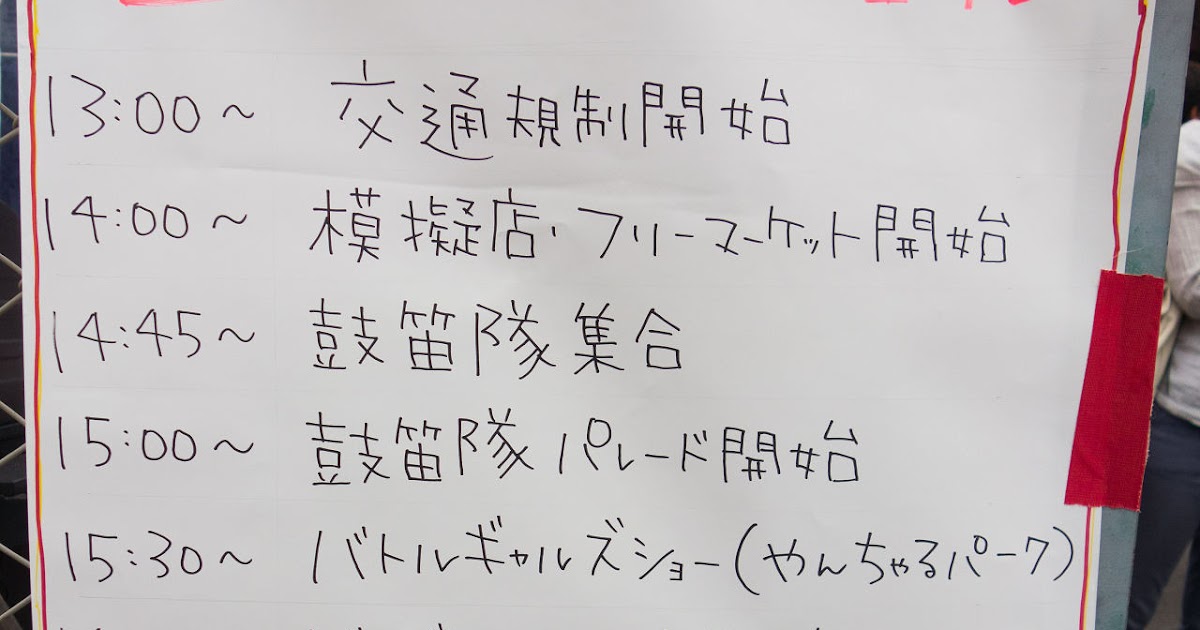 13:00～ 交通規制開始
14:00～ 模擬店・フリーマーケット開始
14:45～ 鼓笛隊集合
15:00～ 鼓笛隊パレード開始
15:30～ バトルギャルズショー(やんちゃるパーク)